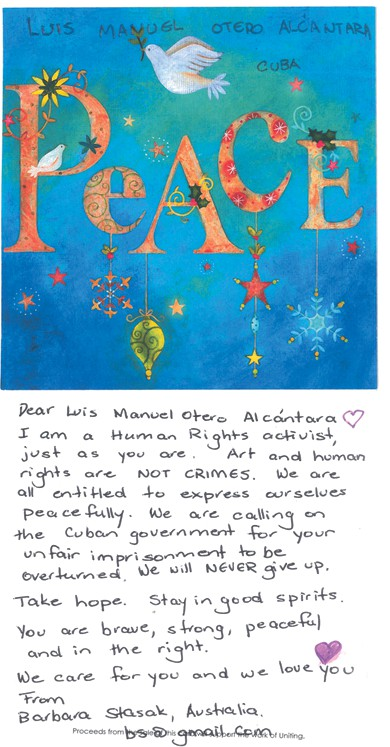 LUIS MANUEL OTERO ALCÁNTARA
CUBA
PEACE
Dear Luis Manuel Otero Alcántara
I am a Human Rights activist,
just as you are. Art and human
rights are NOT CRIMES. We are
all entitled to express ourselves
peacefully. We are calling on
the Cuban government for your
unfair imprisonment to be
overturned. We will NEVER give up.
Take hope. Stay in good spirits.
You are brave, strong, peaceful
and in the right.
We care for you and we love you
From
Barbara Stasak, Australia.
Proceeds from the sale of this support the work of Uniting.
bs@gmail.com